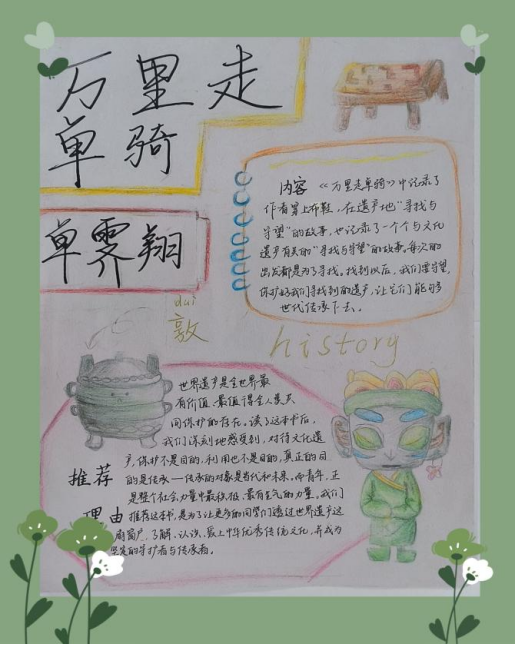 万里走
单骑
单霁翔
内容 《万里走单骑》中记录了
作者穿上布鞋，在遗产地“寻找与
守望”的故事，也记录了一个个与文化
遗产有关的“寻找与守望”的故事。每次的
出发都是为了寻找。找到以后，我们要守望，
保护好我们寻找到的遗产，让它们能够
世代传承下去。
duì
敦
history
世界遗产是全世界最
有价值、最值得全人类共
同保护的存在。读了这本书后，
我们深刻地感受到，对待文化遗
产，保护不是目的，利用也不是目的，真正的目
的是传承——传承的对象是当代和未来。而青年，正
是整个社会力量中最积极、最有生气的力量。我们
推荐这本书，是为了让更多的同学们透过世界遗产这
扇窗户，了解、认识、爱上中华优秀传统文化，并成为
坚定的守护者与传承者。
推荐
理由